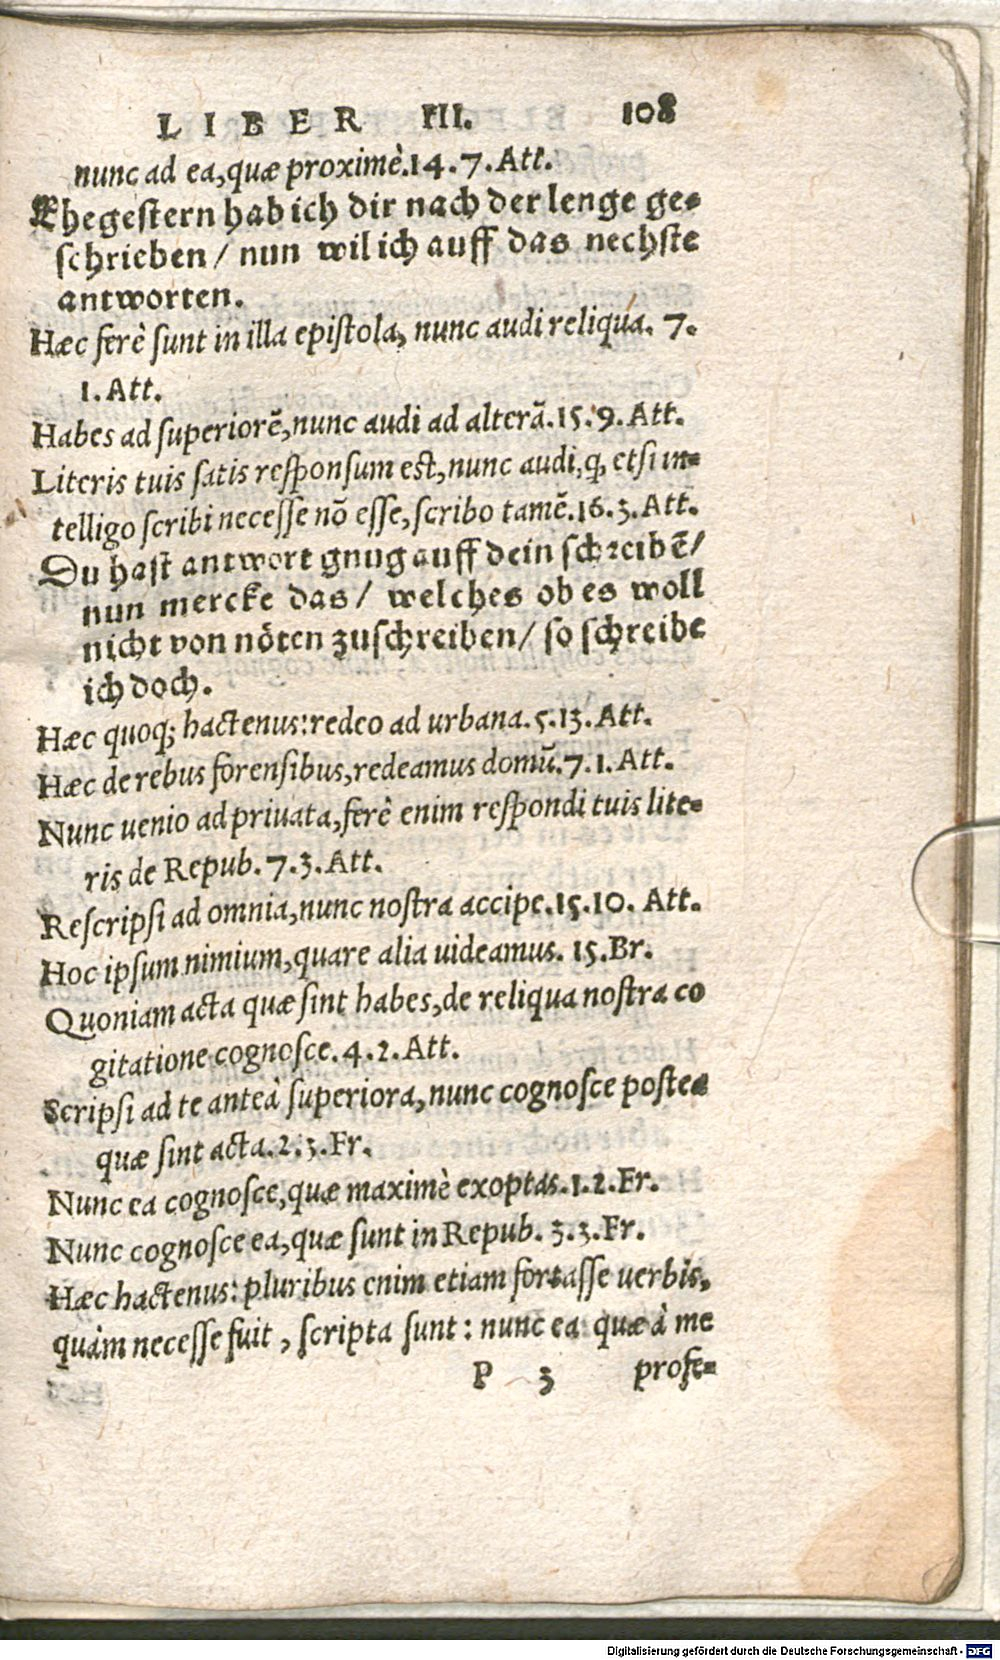 LIBER III. 108
nunc ad ea, quæ proximè. 14. 7. Att.
Ehegestern hab ich dir nach der lenge ge-
schrieben / nun wil ich auff das nechste
antworten.
Hæc ferè sunt in illa epistola, nunc audi reliqua. 7.
1. Att.
Habes ad superiorē, nunc audi ad alterā. 15. 9. Att.
Literis tuis satis responsum est, nunc audi, ꝙ, etsi in-
telligo scribi necesse nō esse, scribo tamē. 16. 3. Att.
Du hast antwort gnug auff dein schreibē/
nun mercke das / welches ob es woll
nicht von nöten zuschreiben / so schreibe
ich doch.
Hæc quoq; hactenus: redeo ad urbana. 5. 13. Att.
Hæc de rebus forensibus, redeamus domū. 7. 1. Att.
Nunc uenio ad priuata, ferè enim respondi tuis lite-
ris de Repub. 7. 3. Att.
Rescripsi ad omnia, nunc nostra accipe. 15. 10. Att.
Hoc ipsum nimium, quare alia uideamus. 15. Br.
Quoniam acta quæ sint habes, de reliqua nostra co
gitatione cognosce. 4. 2. Att.
Scripsi ad te anteà superiora, nunc cognosce postea
quæ sint acta. 2. 3. Fr.
Nunc ea cognosce, quæ maximè exoptas. 1. 2. Fr.
Nunc cognosce ea, quæ sunt in Repub. 3. 3. Fr.
Hæc hactenus: pluribus enim etiam fortasse uerbis,
quàm necesse fuit, scripta sunt: nunc ea quæ à me
P 3 profe-
Digitalisierung gefördert durch die Deutsche Forschungsgemeinschaft - DFG